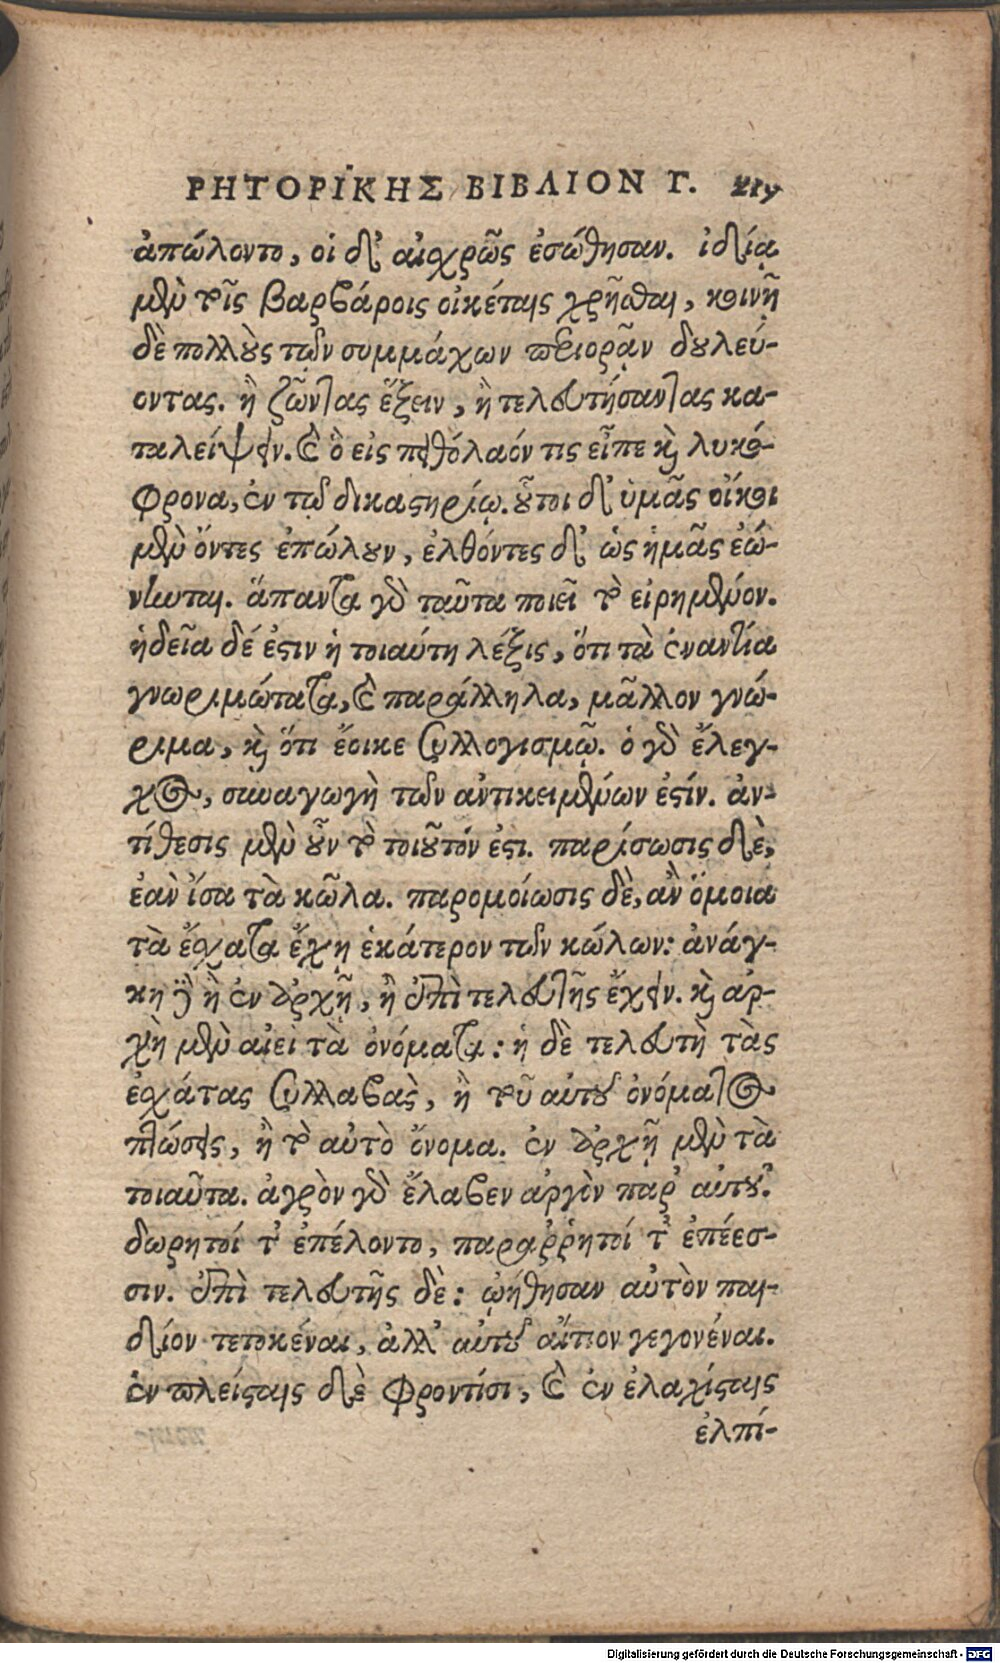 ΡΗΤΟΡΙΚΗΣ ΒΙΒΛΙΟΝ Γ.
ἀπώλοντο, οἱ δ' αἰσχρῶς ἐσώθησαν. ἰδίᾳ
μὲν τοῖς βαρβάροις οἰκέταις χρῆσθαι, κοινῇ
δὲ πολλοὺς τῶν συμμάχων περιορᾶν δουλεύ-
οντας. ἢ ζῶντας ἕξειν, ἢ τελευτήσαντας κα-
ταλείψειν. καὶ ὃ εἰς πειθόλαόν τις εἶπε καὶ λυκό-
φρονα, ἐν τῷ δικαστηρίῳ. οὗτοι δ' ὑμᾶς οἴκοι
μὲν ὄντες ἐπώλουν, ἐλθόντες δ' ὡς ἡμᾶς ἐώ-
νηνται. ἅπαντα γὰρ ταῦτα ποιεῖ τὸ εἰρημένον.
ἡδεῖα δέ ἐστιν ἡ τοιαύτη λέξις, ὅτι τὰ ἐναντία
γνωριμώτατα, καὶ παράλληλα, μᾶλλον γνώ-
ριμα, καὶ ὅτι ἔοικε συλλογισμῷ. ὁ γὰρ ἔλεγ-
χος, συναγωγὴ τῶν ἀντικειμένων ἐστίν. ἀν-
τίθεσις μὲν οὖν τὸ τοιοῦτόν ἐστι. παρίσωσις δὲ,
ἐὰν ἴσα τὰ κῶλα. παρομοίωσις δὲ, ἂν ὅμοια
τὰ ἔσχατα ἔχῃ ἑκάτερον τῶν κώλων: ἀνάγ-
κη δὲ ἢ ἐν ἀρχῇ, ἢ ἐπὶ τελευτῆς ἔχειν. καὶ ἀρ-
χὴ μὲν αἰεὶ τὰ ὀνόματα: ἡ δὲ τελευτὴ τὰς
ἐσχάτας συλλαβὰς, ἢ τοῦ αὐτοῦ ὀνόματος
πτώσεις, ἢ τὸ αὐτὸ ὄνομα. ἐν ἀρχῇ μὲν τὰ
τοιαῦτα. ἀγρὸν γὰρ ἔλαβεν ἀργὸν παρ' αὐτοῦ.
δωρητοί τ' ἐπέλοντο, παράῤῥητοί τ' ἐπέεσ-
σιν. ἐπὶ τελευτῆς δὲ: ᾠήθησαν αὐτὸν παι-
δίον τετοκέναι, ἀλλ' αὐτοῦ αἴτιον γεγονέναι.
ἐν πλείσταις δὲ φροντίσι, καὶ ἐν ἐλαχίσταις
ἐλπί-
Digitalisierung gefördert durch die Deutsche Forschungsgemeinschaft - DFG